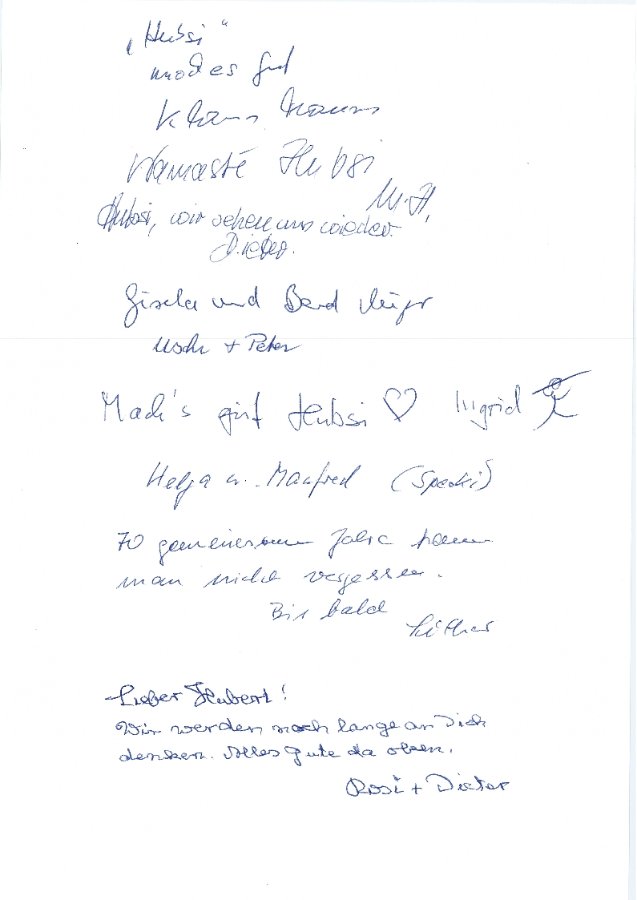 „Hubsi“
mach es gut
Klaus
Namasté Hubsi
M. H.
Hubsi, wir sehen uns wieder.
Dieter.
Gisela und Bernd
+ Peter
Mach's gut Hubsi ♡ Ingrid
Helga u. Manfred (Specki)
70 gemeinsame Jahre kann
man nicht vergessen.
Bis bald
Lothar
Lieber Hubert!
Wir werden noch lange an Dich
denken. Alles Gute da oben.
Rosi + Dieter